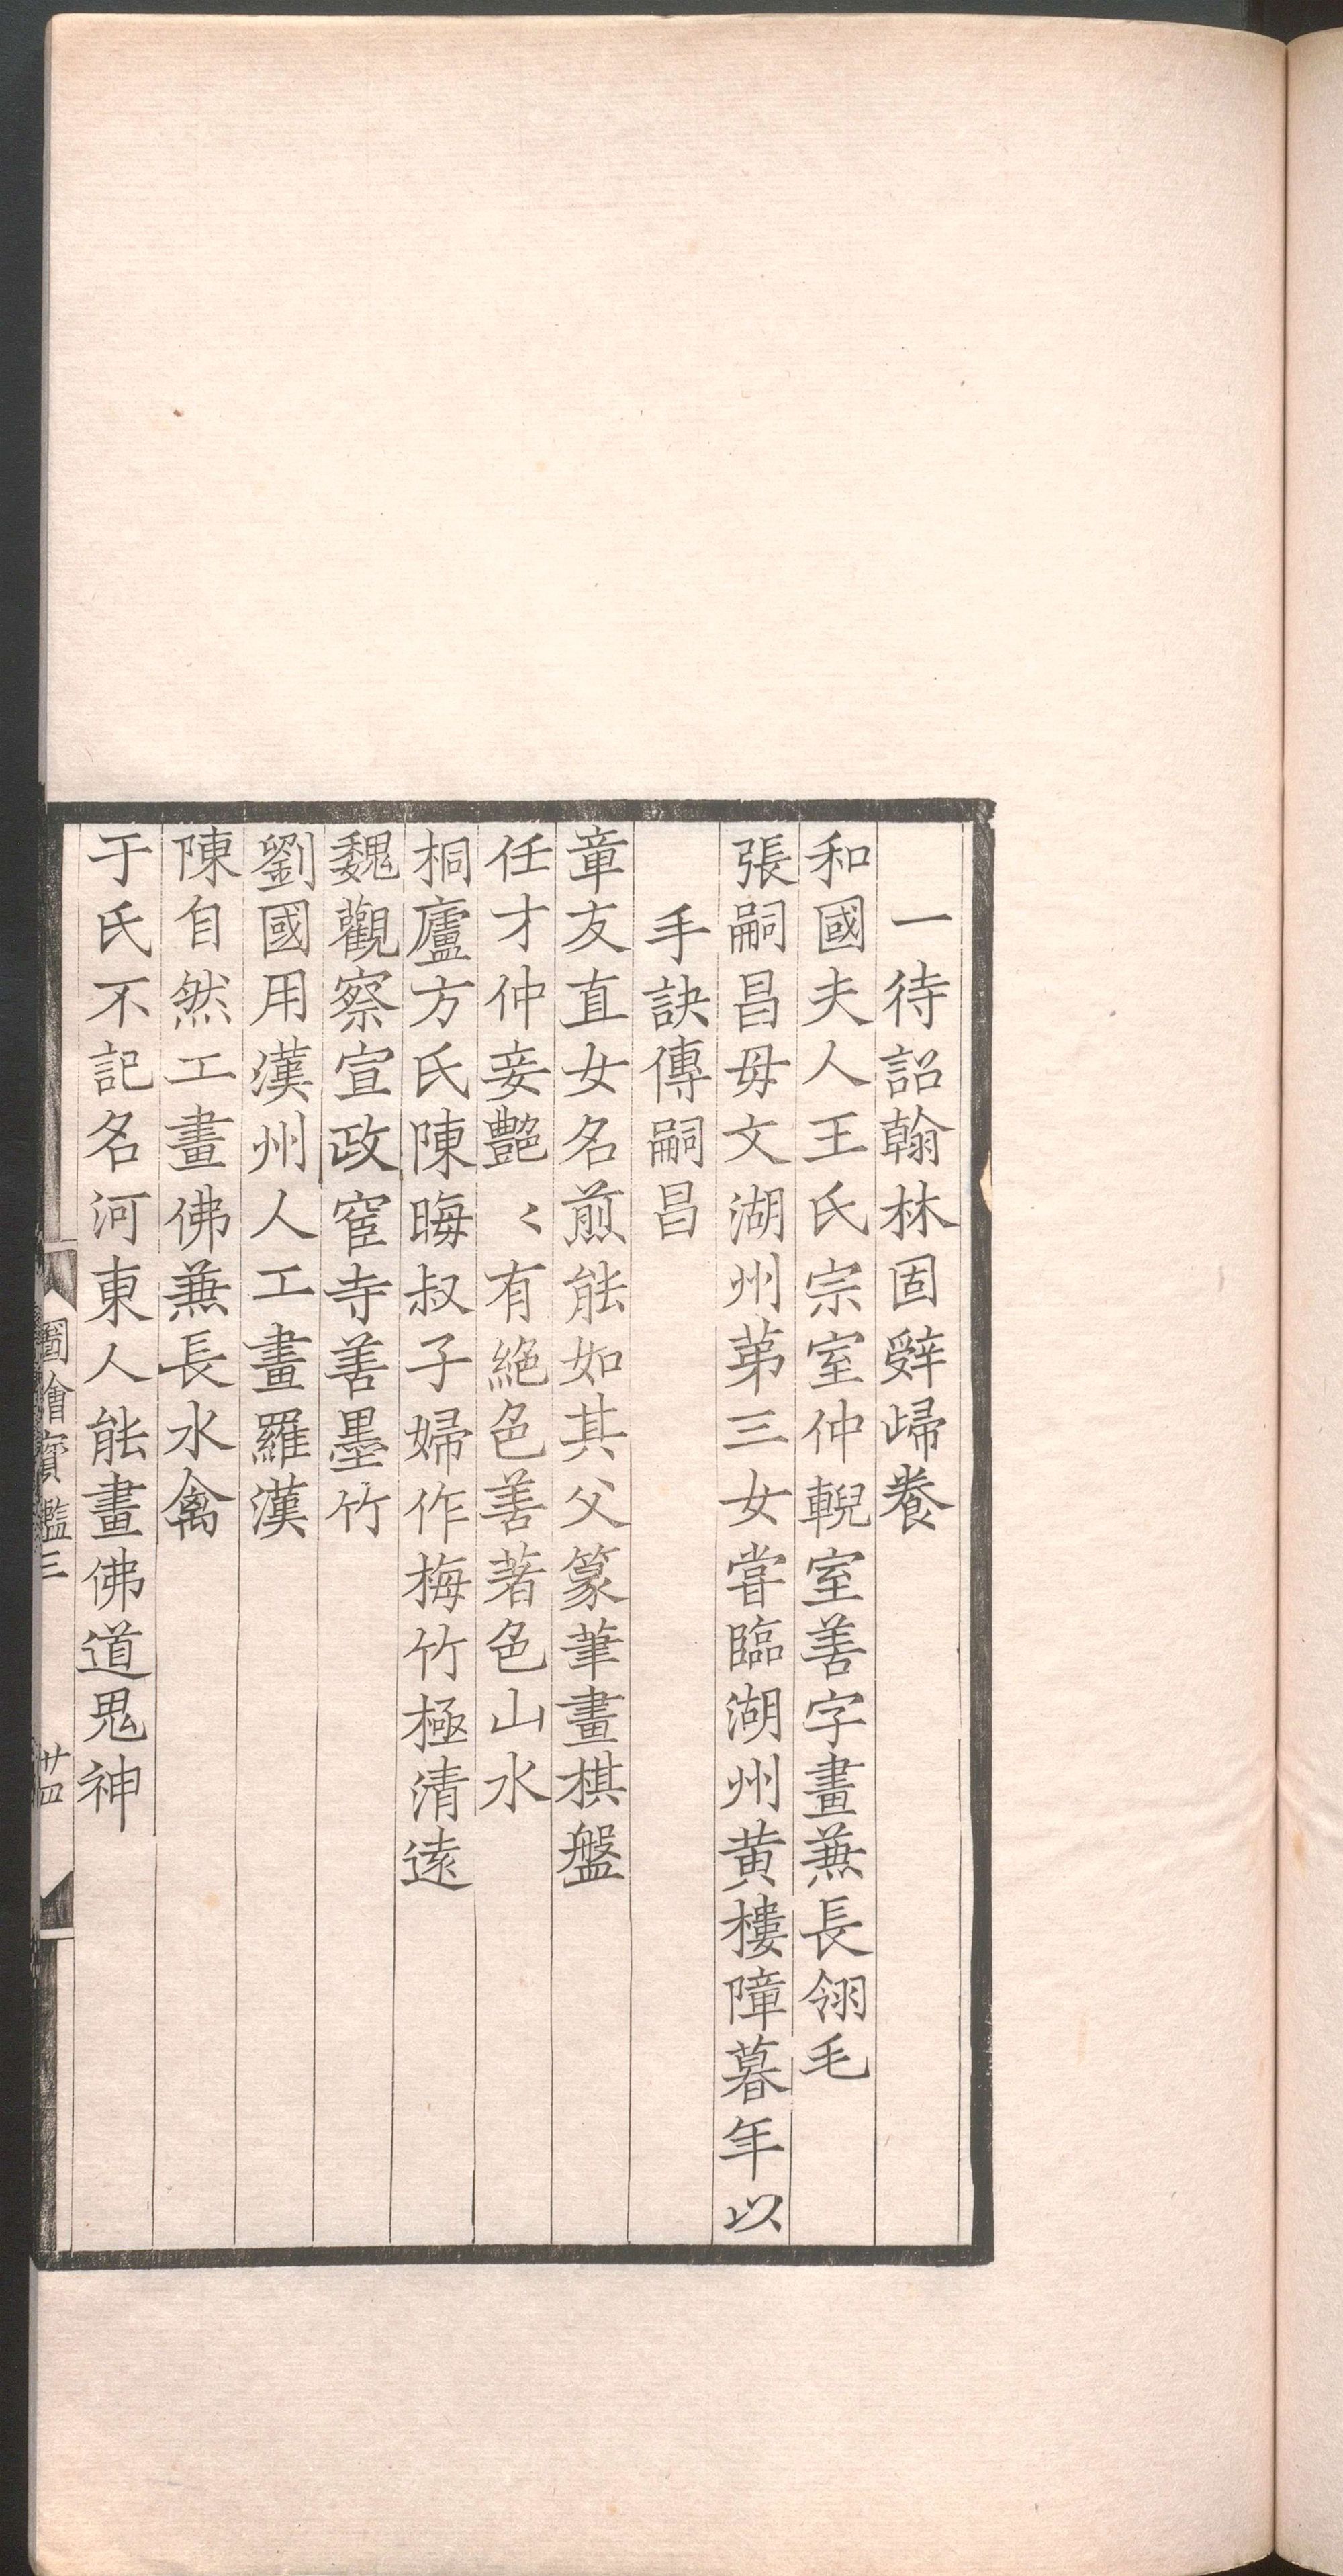 一待詔翰林固辤歸養
和國夫人王氏宗室仲輗室善字畫兼長翎毛
張嗣昌母文湖州苐三女嘗臨湖州黄樓障暮年以
手訣傳嗣昌
章友直女名煎能如其父篆筆畫棋盤
任才仲妾艷〻有絕色善著色山水
桐廬方氏陳晦叔子婦作梅竹極清逺
魏觀察宣政宦寺善墨竹
劉國用漢州人工畫羅漢
陳自然工畫佛兼長水禽
于氏不記名河東人能畫佛道鬼神
圖繪寳鑑三
廿四